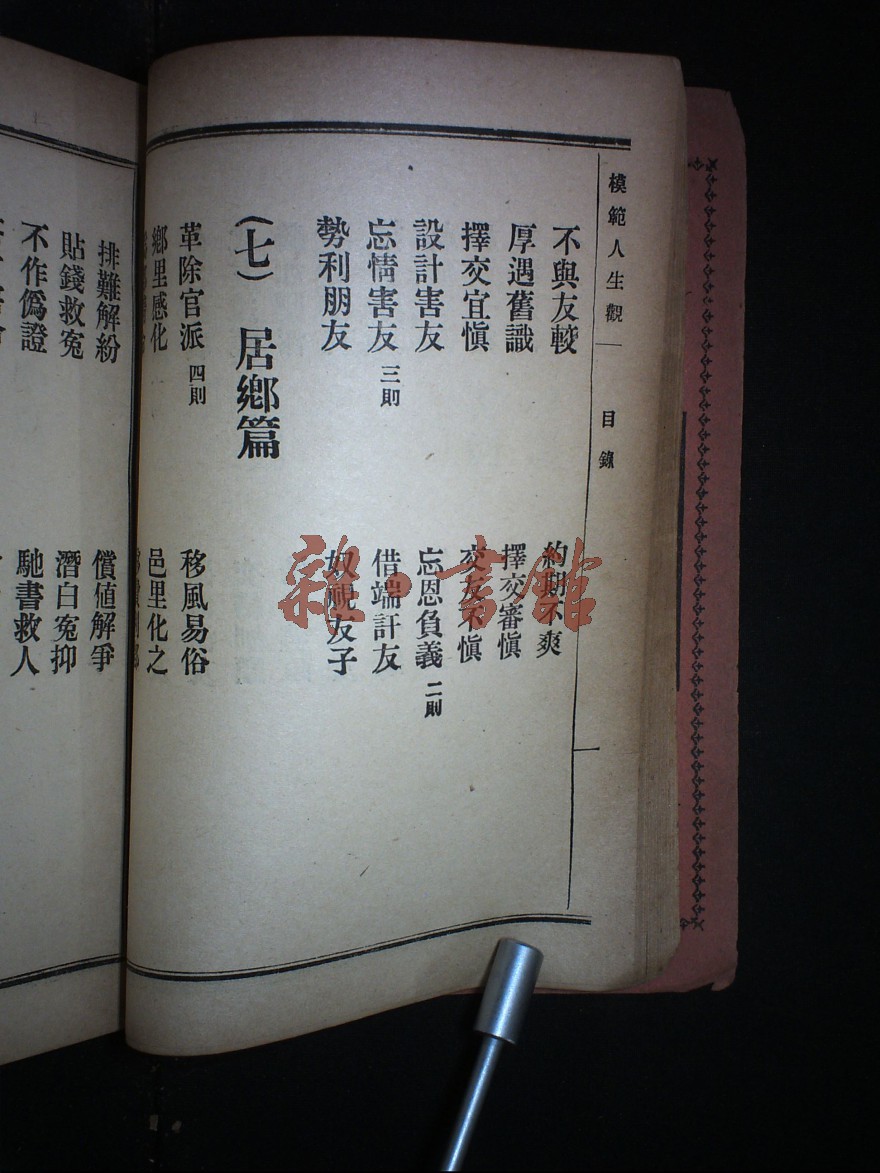 模範人生觀 目錄
不與友較 約期不爽
厚遇舊識 擇交審愼
擇交宜愼 交友不愼
設計害友 忘恩負義 二則
忘情害友 三則 借端訐友
勢利朋友 奴視友子
(七) 居鄉篇
革除官派 四則 移風易俗
鄉里感化 邑里化之
排難解紛 償値解爭
貼錢救冤 潛白冤抑
不作僞證 馳書救人
雜·書館